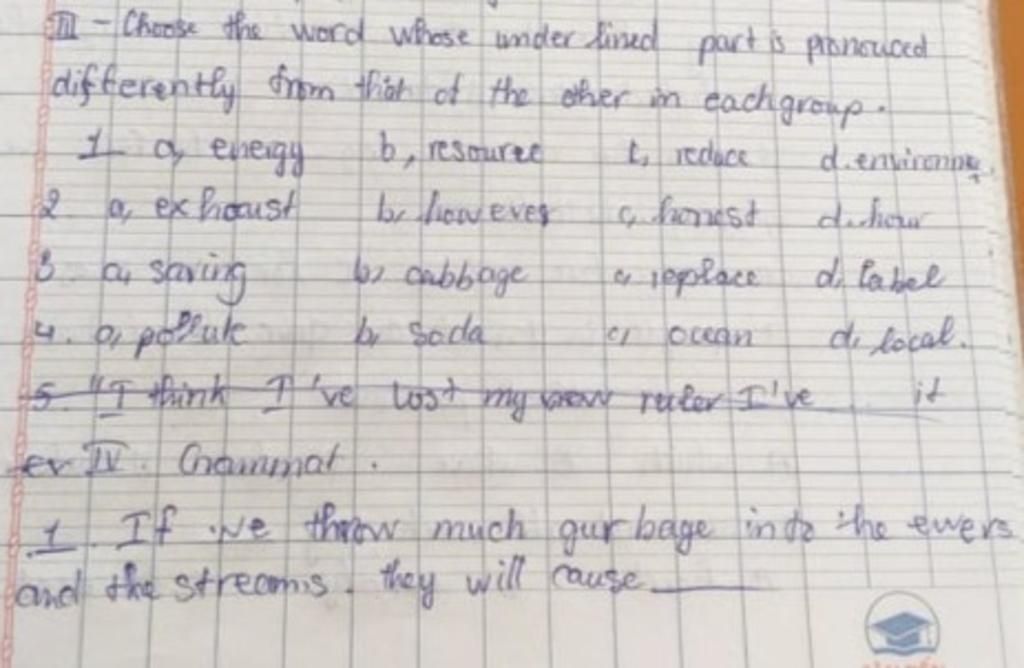 III - Choose the word whose under lined part is pronouced
differently from that of the other in each group.
1 a, energy b, resource c, reduce d. environme
2 a, exhaust b, however c, honest d. hour
3 a, saving b, cabbage c, replace d, label
4. a, pollute b, soda c, ocean d, local.
5. "I think I've lost my new ruler I've ___ it
ex IV. Grammar.
1. If we throw much garbage into the ewers
and the streams. they will cause ______